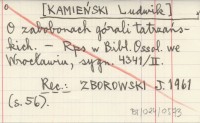 [KAMIEŃSKI Ludwik]
O zabobonach górali tatrzańs-
kich. – Rps w Bibl. Ossol. we
Wrocławiu, sygn. 4341/II.
Rec.: ZBOROWSKI J. 1961
(s. 56).